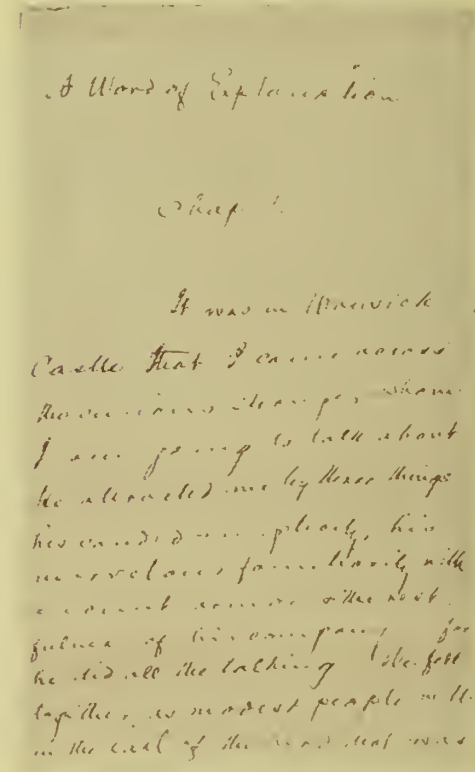 A Word of Explanation
Chap 1.
It was in Warwick
Castle that I came across
the curious stranger whom
I am going to talk about
He attracted me by three things
his candid simplicity, his
marvelous familiarity with
ancient armor & the rest
fulness of his company for
he did all the talking We fell
together, as modest people will
in the tail of the herd that was